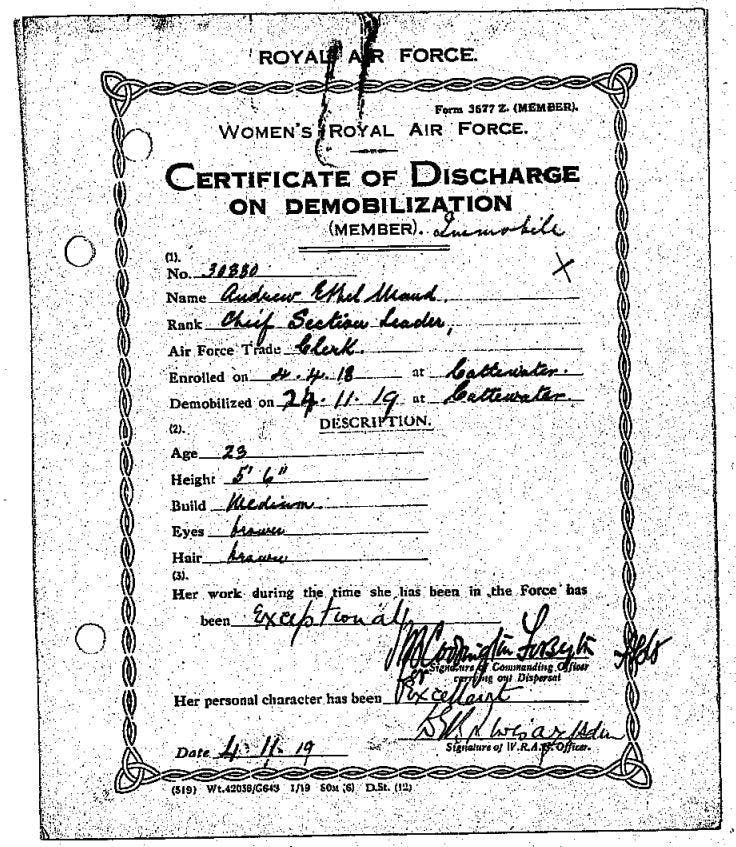 ROYAL AIR FORCE.
Form 3677 Z. (MEMBER).
WOMEN'S ROYAL AIR FORCE.
CERTIFICATE OF DISCHARGE
ON DEMOBILIZATION
(MEMBER). Immobile
(1).
No. 30880
Name Andrew Ethel Maud.
Rank Chief Section Leader,
Air Force Trade Clerk.
Enrolled on 4.4.18 at Cattewater.
Demobilized on 24.11.19 at Cattewater
(2). DESCRIPTION.
Age 23
Height 5' 6"
Build Medium.
Eyes brown
Hair brown
(3).
Her work during the time she has been in the Force has
been Exceptional
Signature of Commanding Officer
carrying out Dispersal
Her personal character has been Excellent
Signature of W.R.A.F. Officer.
Date 4.11.19
(519) Wt.42038/G643 1/19 50M (6) D.St. (12)